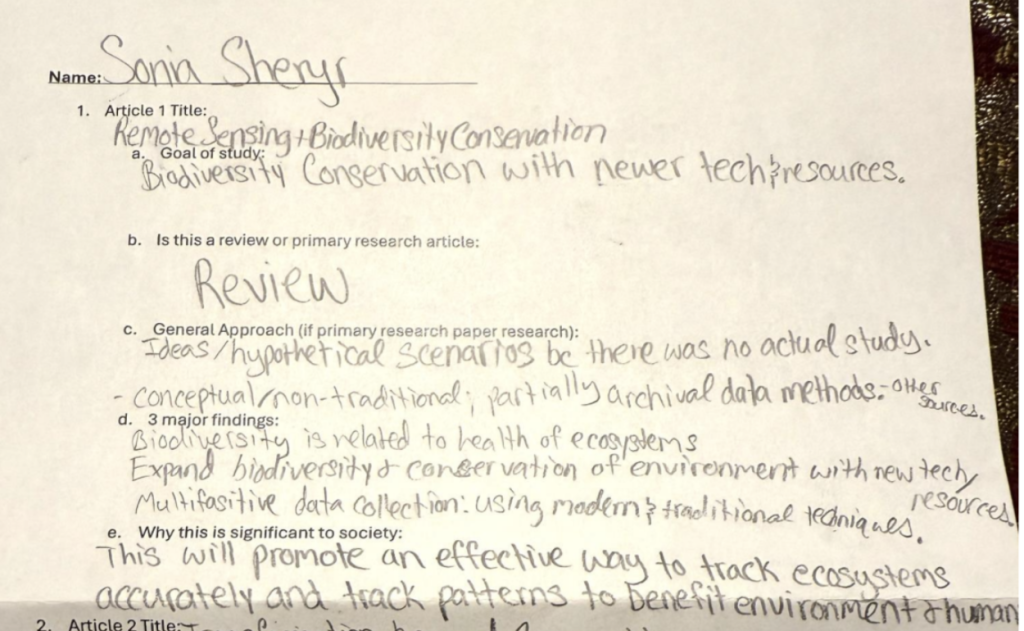 Name: Sonia Sheryr
1. Article 1 Title:
Remote Sensing + Biodiversity Conservation
a. Goal of study:
Biodiversity Conservation with newer tech & resources.
b. Is this a review or primary research article:
Review
c. General Approach (if primary research paper research):
Ideas/hypothetical scenarios bc there was no actual study.
- Conceptual/non-traditional; partially archival data methods. - other sources.
d. 3 major findings:
Biodiversity is related to health of ecosystems
Expand biodiversity & conservation of environment with new tech/
resources.
Multifasitive data collection: using modern & traditional techniques.
e. Why this is significant to society:
This will promote an effective way to track ecosystems
accurately and track patterns to benefit environment & human
2. Article 2 Title: